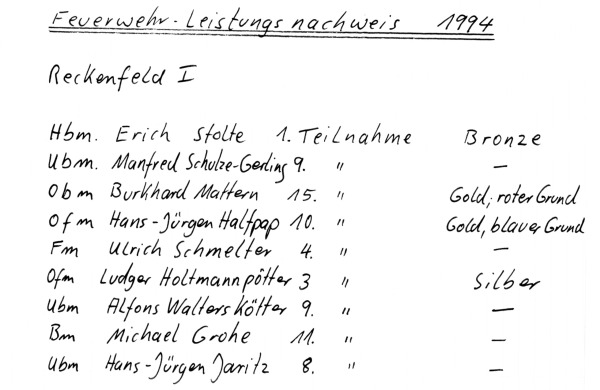 Feuerwehr-Leistungsnachweis 1994
Reckenfeld I
Hbm. Erich Stolte 1. Teilnahme Bronze
Ubm. Manfred Schulze-Gerling 9. " —
Obm Burkhard Mattern 15. " Gold, roter Grund
Ofm Hans-Jürgen Halfpap 10. " Gold, blauer Grund
Fm Ulrich Schmelter 4. " —
Ofm Ludger Holtmannpötter 3 " Silber
Ubm Alfons Walterskötter 9. " —
Bm Michael Grohe 11. " —
Ubm Hans-Jürgen Jaritz 8. " —